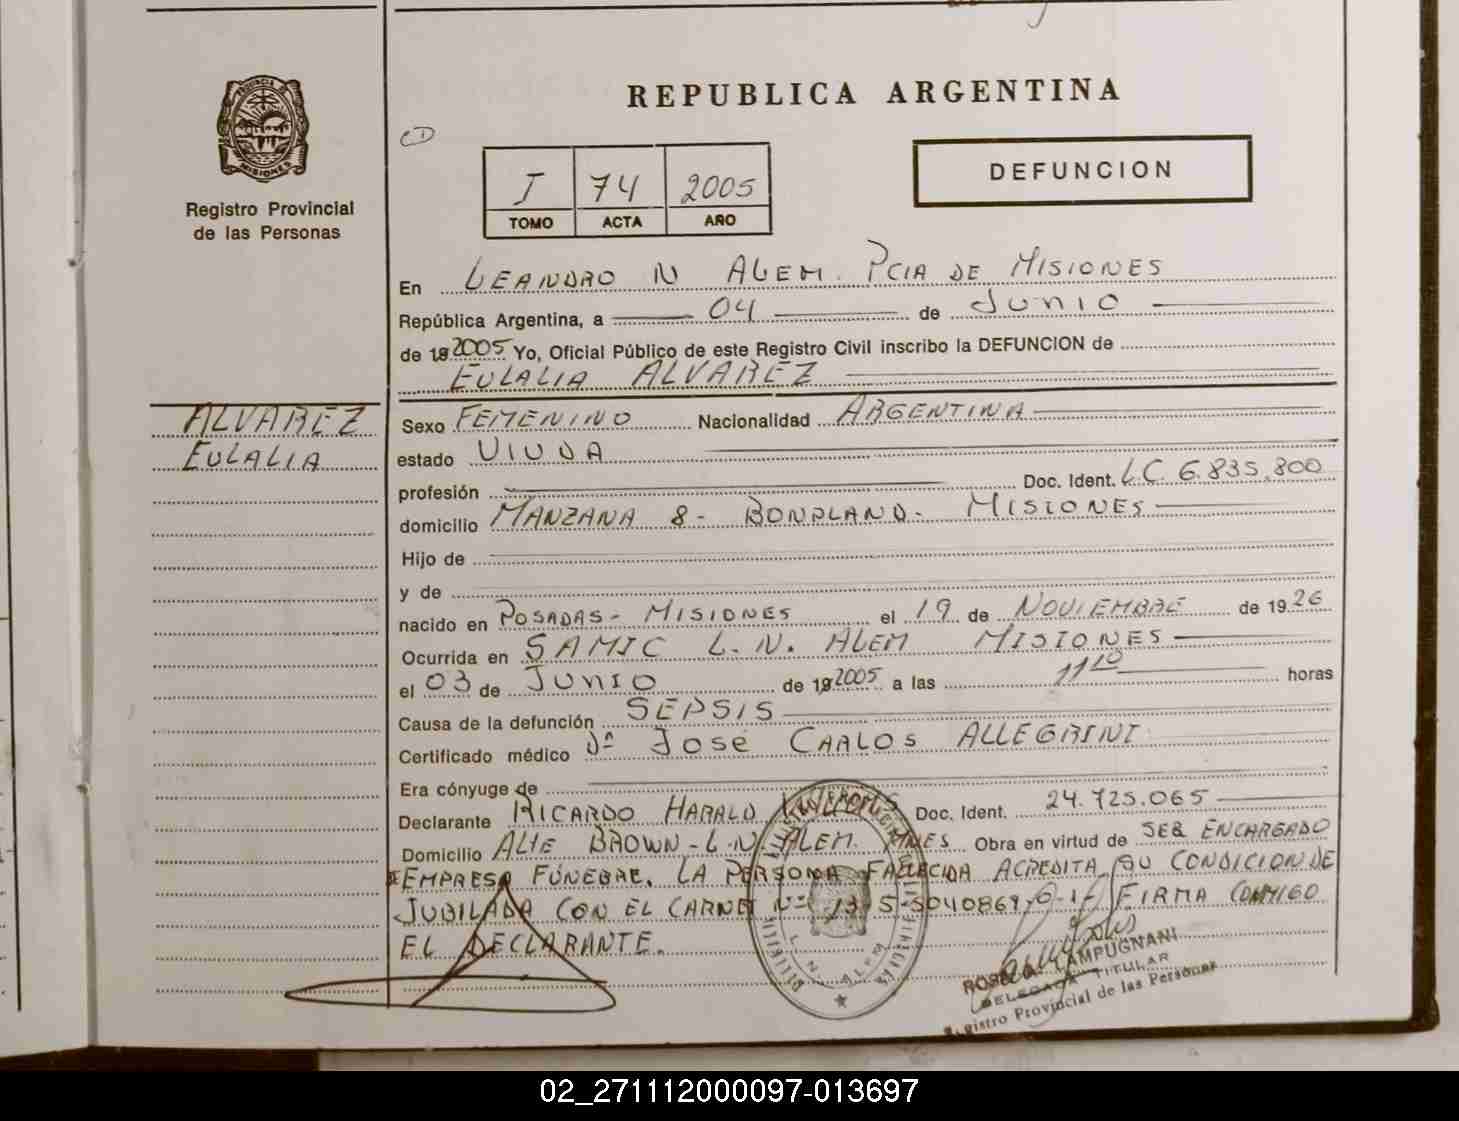 REPUBLICA ARGENTINA
PROVINCIA DE
MISIONES
Registro Provincial
de las Personas
CD
I 74 2005
TOMO ACTA AÑO
DEFUNCION
En LEANDRO N ALEM. PCIA DE MISIONES
República Argentina, a 04 de JUNIO
de 19 2005 Yo, Oficial Público de este Registro Civil inscribo la DEFUNCION de
EULALIA ALVAREZ
ALVAREZ
EULALIA
Sexo FEMENINO Nacionalidad ARGENTINA
estado VIUDA
profesión Doc. Ident. LC 6.835.800
domicilio MANZANA 8- BONPLAND- MISIONES
Hijo de
y de
nacido en POSADAS- MISIONES el 19 de NOVIEMBRE de 1926
Ocurrida en SAMIC L.N. ALEM MISIONES
el 03 de JUNIO de 19 2005 a las 11 10 horas
Causa de la defunción SEPSIS
Certificado médico Dr JOSÉ CARLOS ALLEGRINI
Era cónyuge de
Declarante RICARDO HARALD Doc. Ident. 24.725.065
Domicilio ALTE BROWN-L.N. ALEM. MNES Obra en virtud de SER ENCARGADO
EMPRESA FÚNEBRE. LA PERSONA FALLECIDA ACREDITA SU CONDICION DE
JUBILADA CON EL CARNET Nº FIRMA CONMIGO
EL DECLARANTE.
L. N. ALEM
LAMPUGNANI
DELEGADA TITULAR
Registro Provincial de las Personas
02_271112000097-013697